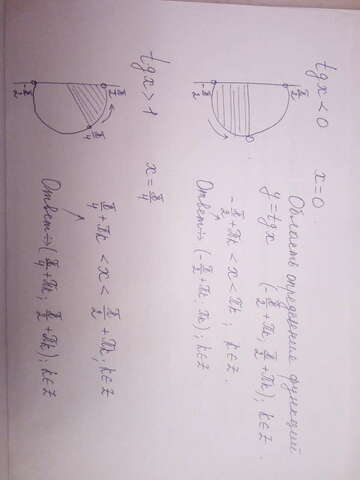 tgx < 0
x = 0
Область определение функций
y = tgx (-π/2 + πk; π/2 + πk); k ∈ Z.
-π/2 + πk < x < πk; k ∈ Z.
Ответ: (-π/2 + πk; πk); k ∈ Z.
π/2
0
-π/2
tgx > 1
x = π/4
π/4 + πk < x < π/2 + πk; k ∈ Z
Ответ: (π/4 + πk; π/2 + πk); k ∈ Z
π/2
π/4
-π/2